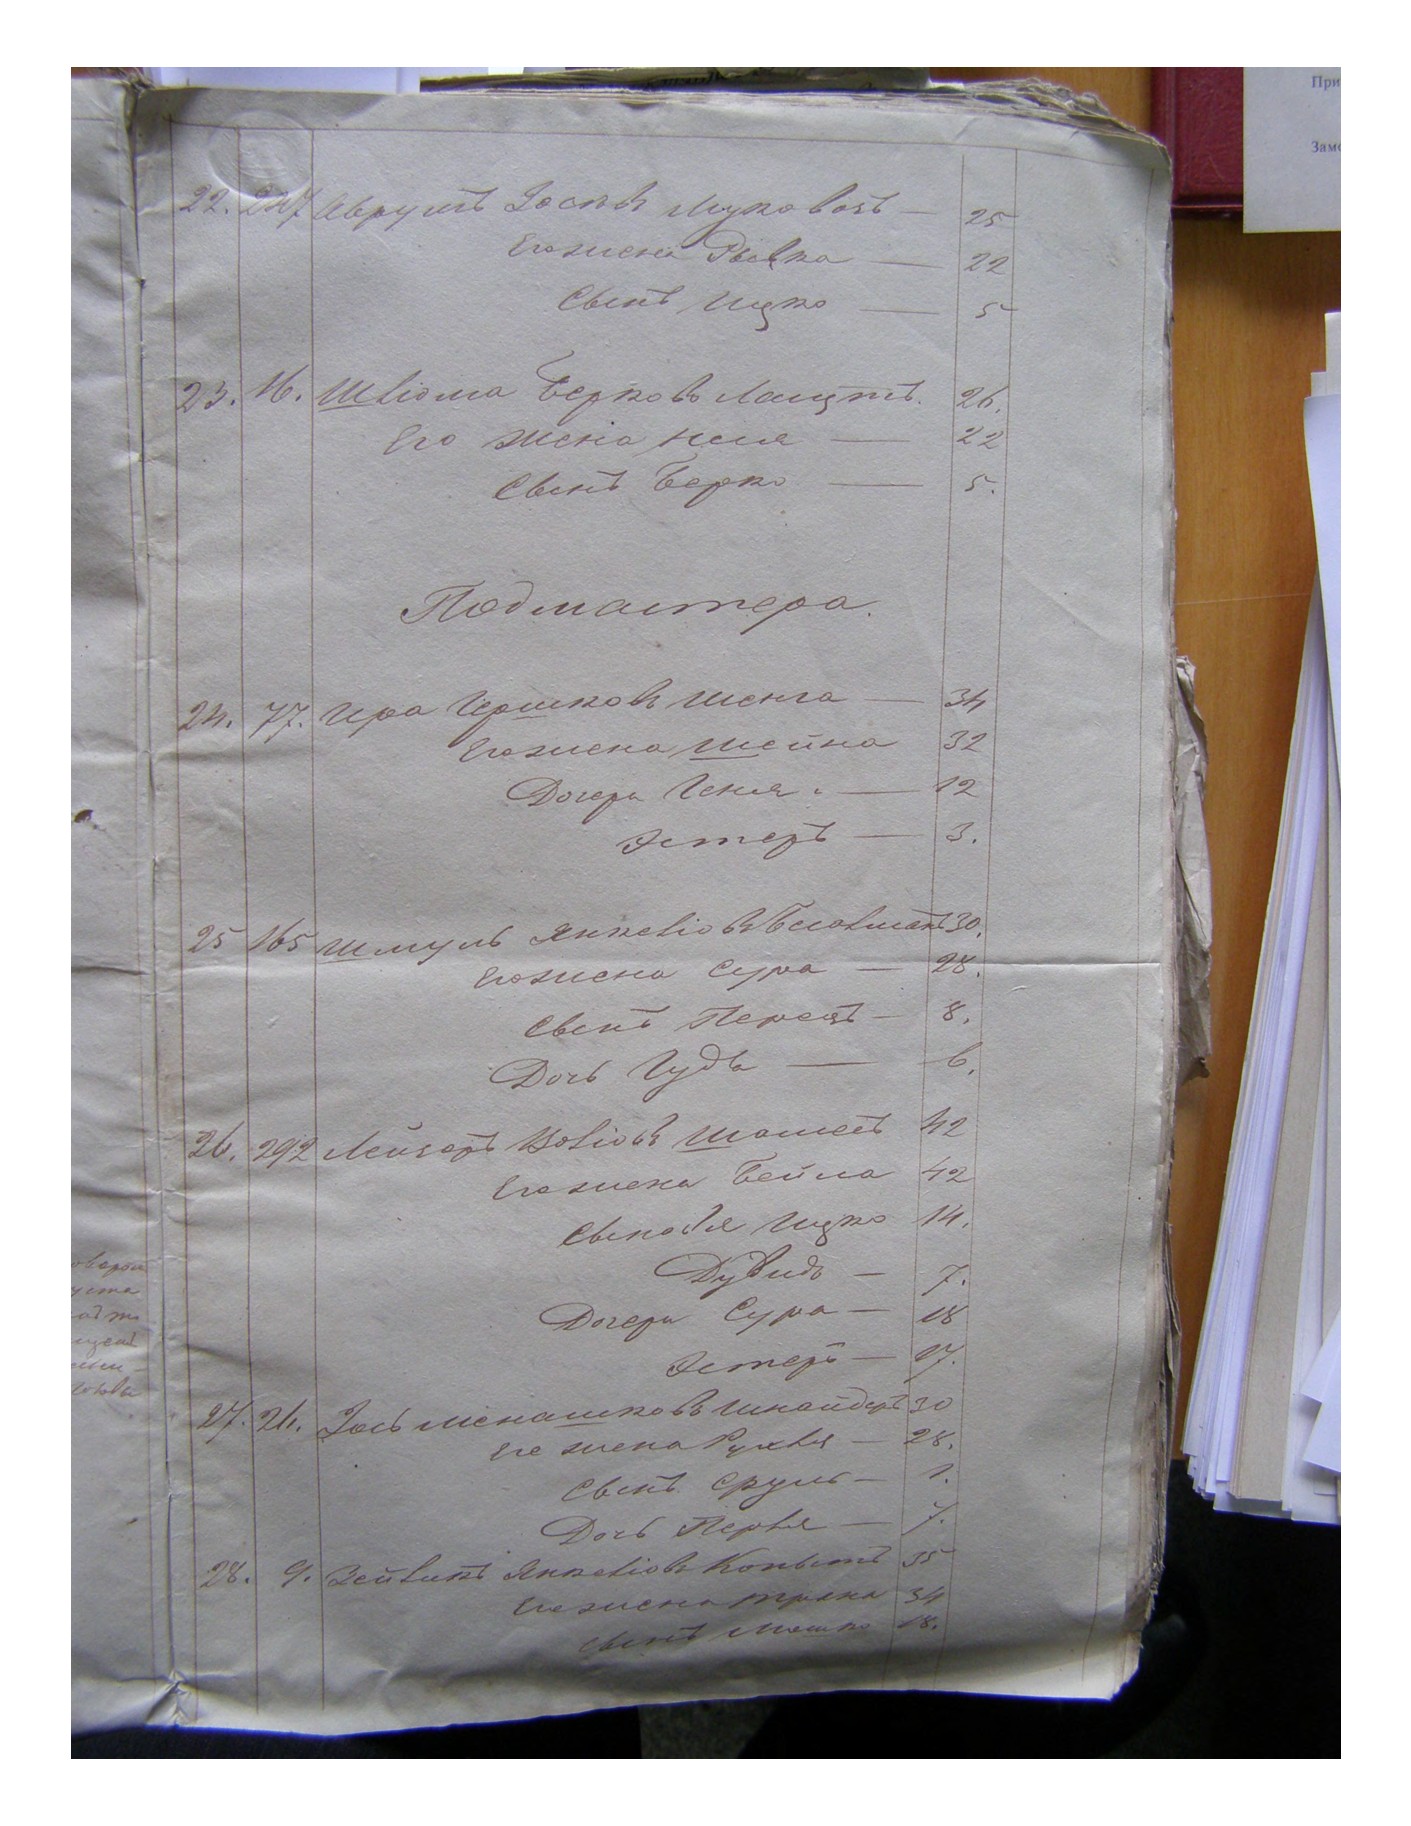 При
Замо
22. 227 Аврумъ Іосьовъ Муковозъ — 25
Его жена Рывка — 22
Сынъ Ицко — 5
23. 16. Шліома Берковъ 26.
Его жена Неся — 22
Сынъ Берко — 5.
Подмастера.
24. 77. Ира Гершковъ Шенга — 34
Его жена Шейна 32
Дочери Геня — 12
Эстеръ — 3.
25 165 Шмуль Янкеліовъ 30.
Его жена Сура — 28.
Сынъ Перецъ — 8.
Дочь Гудь — 6.
26. 292 Лейзоръ Волiовъ Шамесъ 42
Его жена Бейла 42
Сыновья Ицко 14.
Дувидъ — 7.
Дочери Сура — 18
Эстеръ — 17.
27. 26. Іось Менашковъ Шнайдеръ 30
Его жена Рухля — 28.
Сынъ Сруль — 1.
Дочь Перля — 7.
28. 9. Зейликъ Янкеліовъ Копытъ 35
Его жена 34
Сынъ Мошко 18.